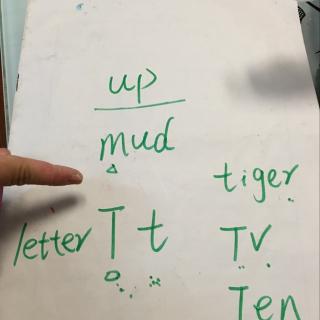 up
mud
tiger
letter T t
TV
Ten